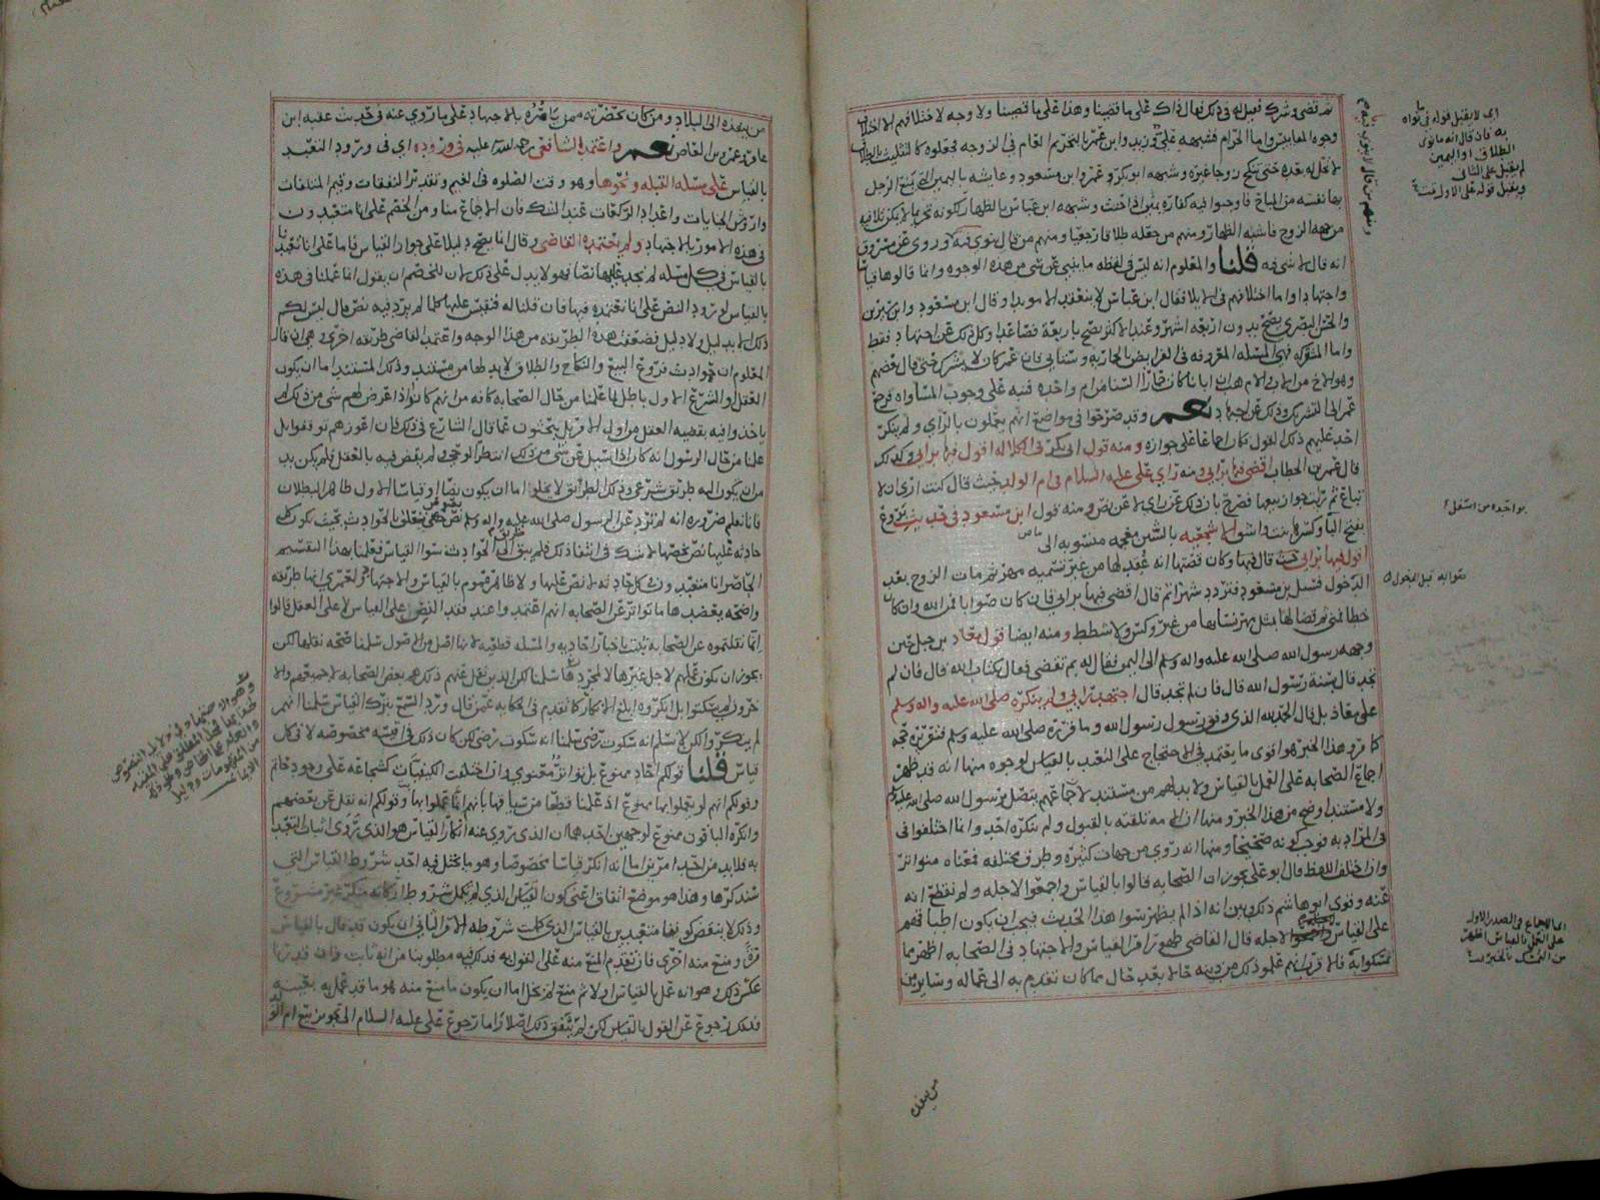 ثم قضى وشرك فقيل له في ذلك فقال ذاك على ما قضينا وهذا على ما قضينا ولا وجه لاختلافهم الا اختلاف
وجوه المقاييس واما الحرام فشبهه علي وزيد وابن عمر بالتحريم العام في الزوجه فجعلوه كالتثليث بالطلاق
لا تحل له بعده حتى تنكح زوجا غيره وشبهه ابو بكر وعمر وابن مسعود وعايشه باليمين التي يمنع الرجل
بها نفسه من المباح فاوجبوا فيه كفاره يمين اذا حنث وشبهه ابن عباس بالظهار لكونه تحريما لا يمكن تلافيه
من جهه الزوج فاشبه الظهار ومنهم من جعله طلاقا رجعيا ومنهم من قال ينوى فيه وروي عن مسروق
انه قال لا شي فيه قلنا والمعلوم انه ليس في لفظه ما ينبي عن شي من هذه الوجوه وانما قالوها قياسا
واجتهادا واما اختلافهم في الايلا فقال ابن عباس لا ينعقد الا موبدا وقال ابن مسعود وابن سيرين
والحسن البصري يصح بدون اربعه اشهر وعند الاكثر يصح باربعة فصاعدا وكل ذلك عن اجتهاد فقط
واما المشركه فهي المسئله المعروفه في الفرايض بالحماريه وستاتي فان عمر كان لا يشرك حتى قال بعضهم
وهو الاخ من الاب والام هب ان ابانا كان حمارا السنا من ام واحده فنبه على وجوب المساواه فرجع
عمر الى التشريك وذلك عن اجتهاد نعم وقد صرحوا في مواضع انهم يعملون بالراي ولم ينكر
احد عليهم ذلك القول فكان اجماعا على جوازه ومنه قول ابي بكر في الكلاله اقول فيها برايي وكذلك
قال عمر بن الخطاب اقضي فيها برايي ومنه راي علي عليه السلام في ام الولد حيث قال كنت ارى ان لا
تباع ثم رايت جواز بيعها فصرح بان ذلك عن راي لا عن نص ومنه قول ابن مسعود في حديث بروع
بفتح البا وكسرها بنت واشق الاشجعيه بالشين معجمه منسوبه الى
اقول فيها برايي حيث قال فيها وكان قصتها انه عقد لها من غير تسميه مهر ثم مات الزوج بعد
الدخول فسئل ابن مسعود فتردد شهرا ثم قال اقضي فيها برايي فان كان صوابا فمن الله وان كان
خطا فمني ثم قضا لها بمثل مهر نسايها من غير وكس ولا شطط ومنه ايضا قول معاذ بن جبل حين
وجهه رسول الله صلى الله عليه واله وسلم الى اليمن فقال له بم تقضي فقال بكتاب الله قال فان لم
تجد قال بسنة رسول الله قال فان لم تجد قال اجتهد رايي ولم ينكره صلى الله عليه واله وسلم
على معاذ بل قال الحمد لله الذي وفق رسول رسول الله وما قرره صلى الله عليه وسلم فتقريره حجه
كما مر وهذا الخبر هو اقوى ما يعتمد في الاحتجاج على التعبد بالقياس لوجوه منها انه قد ظهر
اجماع الصحابه على العمل بالقياس ولا بد لهم من مستند لاجماعهم يتصل برسول الله صلى الله عليه
ولا مستند اوضح من هذا الخبر ومنها ان الامه تلقته بالقبول ولم ينكره احد وانما اختلفوا في
في المراد به فوجب كونه صحيحا ومنها انه روي من جهات كثيره وطرق مختلفه فمعناه متواتر
وان اختلف اللفظ قال ابو علي يجوز ان الصحابه قالوا بالقياس واجمعوا لاجله ولم نقطع انه
عنه وقوى ابو هاشم ذلك بين انه اذا لم يظهر سوا هذا الحديث فيجب ان يكون اطباقهم
على القياس لاجله قال القاضي ظهور امر القياس والاجتهاد في الصحابه اظهر مما
تمسكوا به فالاقرب انهم علموا ذلك من دينه حالا بعد حال مما كان تقدم به الى عماله وسايرين
اي لا يقبل قوله في ما نواه
به فان قال انه ما نوى
الطلاق او اليمين
لم يقبل على الثاني
ويقبل قوله على الاول
ومنهم من قال لا ينوى
بواحده من اسفل
صوابه قبل الدخول
اي الاجماع في الصدر الاول
على العمل بالقياس اظهر
من التمسك بالخبر
من ينفذه
من ينفذه الى البلاد ومن كان بحضرته ممن يامره بالاجتهاد على ما روي عنه في حديث عقبه ابن
عامر وعمرو بن العاص نعم واعتمد الشافعي رحمه الله عليه في وروده اي في ورود التعبد
بالقياس على مسئله القبله ونحوها وهو وقت الصلوه في الغيم وتقدير النفقات وقيم المتلفات
واروش الجنايات واعداد الركعات عند الشك فان الاجماع منا ومن الخصم على انا متعبدون
في هذه الامور بالاجتهاد ولم يعتمده القاضي وقال انما يصح دليلا على جواز القياس فاما على انا تعبدنا
بالقياس في كل مسئله لم نجد عليها نصا فهو لا يدل على ذلك لان للخصم ان يقول انا عملنا في هذه
بالقياس لورود النص على انا نعتمده فيها فان قلنا له فنقيس عليها كلما لم يرد فيه نص قال ليس لكم
ذلك الا بدليل ولا دليل فضعفت هذه الطريقه من هذا الوجه واعتمد القاضي طريقه اخرى وهي ان قال
المعلوم ان حوادث فروع البيع والنكاح والطلاق لا بد لها من مستند وذلك المستند اما ان يكون
العقل او الشرع الاول باطل لما علمنا من حال الصحابه كافه من انهم كانوا اذا عرض لهم شي من ذلك لم
ياخذوا فيه بقضيه العقل من اول الامر بل يبحثون عما قال الشارع في ذلك فان اعوزهم توقفوا بل
علمنا من حال الرسول انه كان اذا سئل عن شي من ذلك انتظر الوحي ولم يقض فيه بالعقل فلم يكن بد
من ان يكون اليه طريق شرعي وذلك الطريق لا يخلوا اما ان يكون نصا او قياسا الاول ظاهر البطلان
فانا نعلم ضروره انه لم ترد عن الرسول صلى الله عليه واله وسلم نصوص تتعلق بالحوادث بحيث يكون كل
حادثه عليها نص يخصها لا شك في انتفا ذلك فلم يبق الى الحوادث سوا القياس فعلمنا بهذا التقسيم
الحاصر انا متعبدون في كل حادثه لا نص عليها ولا ظاهر عموم بالقياس والاجتهاد ولعمري انها طريقه
واضحه يعضدها ما تواتر عن الصحابه انهم اعتمدوا عند فقد النص على القياس لا على العقل قالوا
انما نقلتموه عن الصحابه يثبت باخبار احاديه والمسئله قطعيه لانها اصل من الاصول سلمنا صحه نقلها لكن
يجوز ان يكون عملهم لاجل غيرها لا لمجردها سلمنا لكن الذين نقل عنهم ذلك هم بعض الصحابه لا جميعهم والا
خرون لم يسكتوا بل انكروه ابلغ الانكار كما تقدم في الحكايه عمن قال ورد السمع بترك القياس سلمنا انهم
لم ينكروا لكن لا نسلم انه سكوت رضى سلمنا انه سكوت رضى لكن كان ذلك في اقيسه مخصوصه لا في كل
قياس قلنا قولكم احاد ممنوع بل تواتر معنوي وان اختلفت الكيفيات كشجاعه علي وجود حاتم
وقولكم انهم لو يعملوا بها ممنوع اذ علمنا قطعا من سياقها بانهم انما عملوا بها وقولكم انه نقل عن بعضهم
وانكره الباقون ممنوع لوجهين احدهما ان الذي روي عنه انكار القياس هو الذي روى اثبات التعبد
به فلا بد من احد امرين اما انه انكر قياسا مخصوصا وهو ما يختل فيه احد شروط القياس التي
سنذكرها وهذا هو موضع اتفاق اعني كون القياس الذي لم تكمل شروط اركانه منكر غير مشروع
وذلك لا ينقض كوننا متعبدين بالقياس الذي كملت شروطه الامر الثاني ان يكون قد قال بالقياس
مره ومنع منه اخرى فان تقدم المنع منه على القول به فذلك فيه مطلوبنا من انه ثابت وان قدرنا
عكس ذلك وهو انه عمل بالقياس اولا ثم منع لم يخل اما ان يكون ما منع منه هو ما قد عمل به بعينه
فذلك رجوع عن القول بالقياس لكن لم يتفق ذلك اصلا واما رجوع علي عليه السلام الى تجويز بيع ام الولد